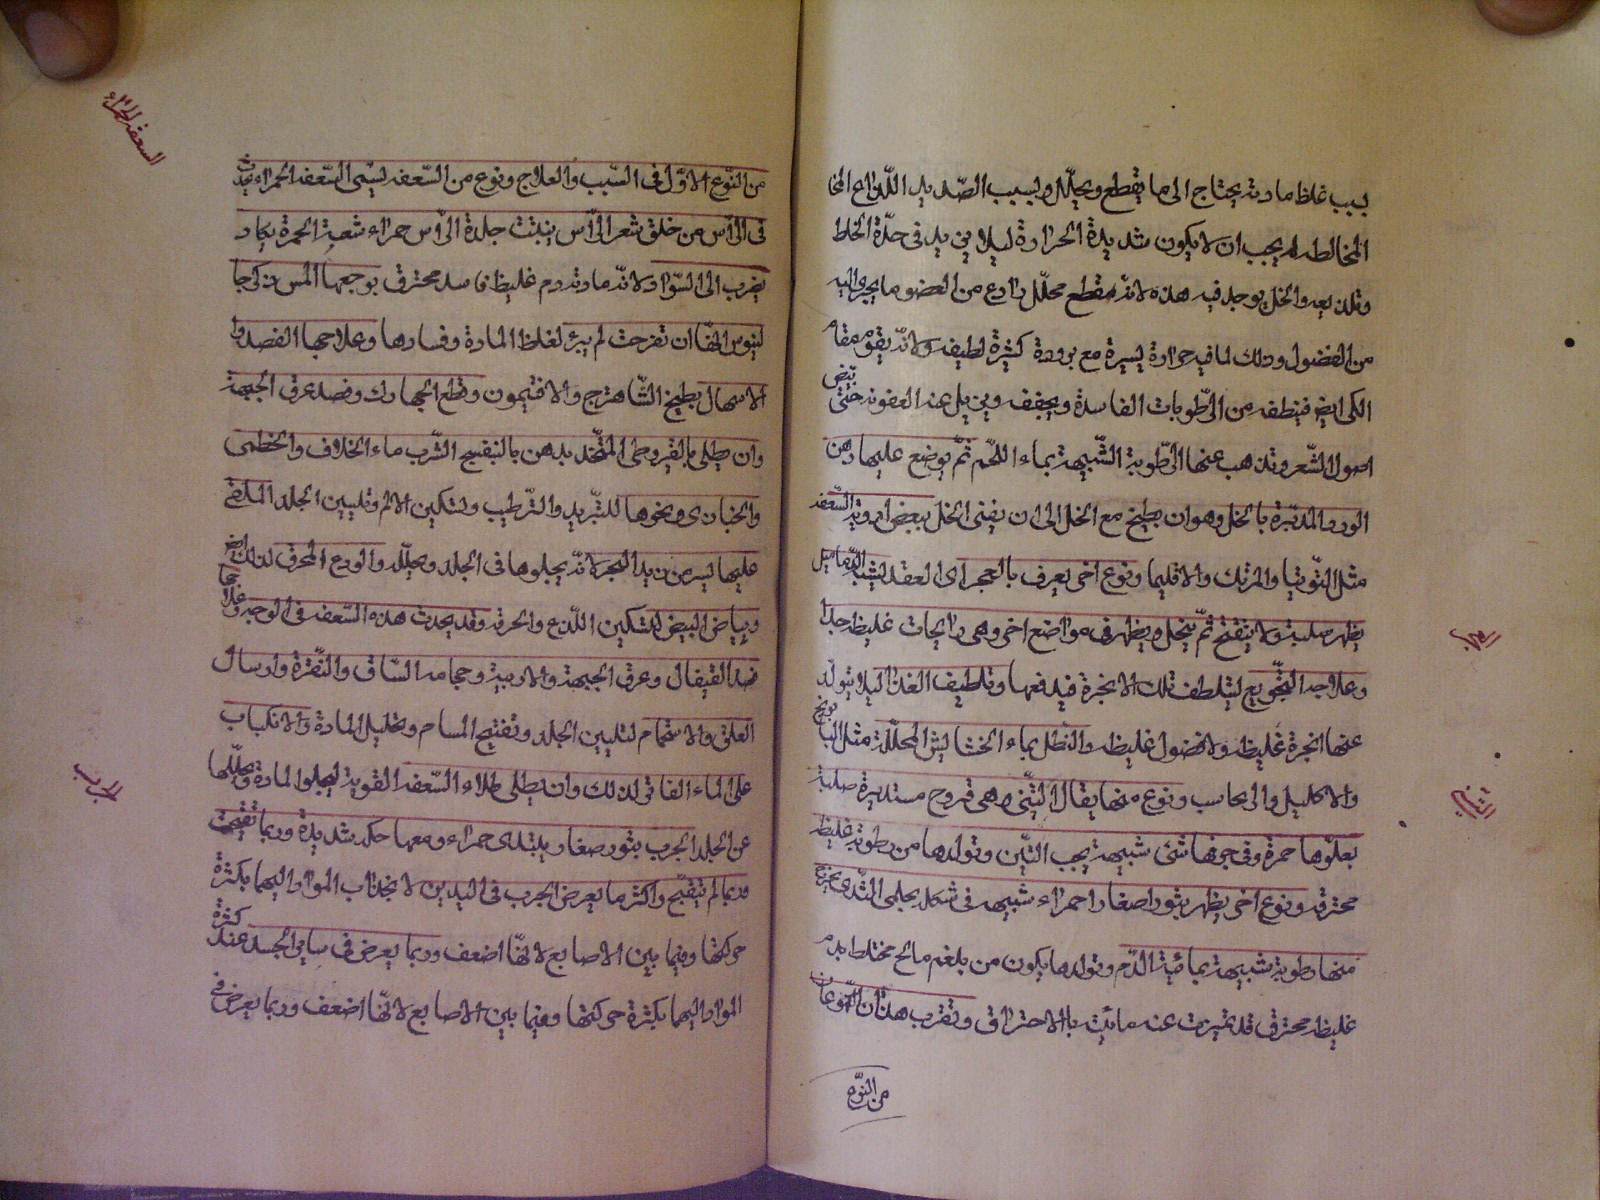 بسبب غلظ مادته يحتاج الى ما يقطع ويحلل ولسبب الصديد اللذاع
المخالط له يجب ان لا يكون شديدة الحرارة ليلا يزيد فى حدة الخلط
ولذيعه والخل يوجد فيه هذه لانه مقطع محلل رادع من العضو ما يجرى اليه
من الفضول وذلك لما فيه حرارة يسيرة مع برودة كثيرة لطيفة ولانه يقوم مقام
الكى ايض فينظفه من الرطوبات الفاسدة ويجفف ويزيل عنه العفونة حتى
اصول الشعر وتذهب عنها الرطوبة الشبيهة بماء اللحم ثم يوضع عليها دهن
الورد المدبرة بالخل وهو ان يطبخ مع الخل الى ان يفنى الخل ببعض ادوية السعفة
مثل التوتيا والمرتك والاقليميا ونوع اخر يعرف بالعجر اى العقد يشبه الدماميل
يظهر صلبة ولا ينفتح ثم ينحل ويظهر فى مواضع اخر وهى رايحات غليظ جدا
وعلاجه التجويع ليتلطف تلك الابخرة فيدفعها وتلطيف الغذا ليلا يتولد
عنها ابخرة غليظة ولا فضول غليظة والنطل بماء الحشايش المحللة مثل البابونج
والاكليل والرعاسب ونوع منها يقال التينى وهى قروح مستديرة صلبة
يعلوها حمرة وفى جوفها شئ شبيهة بحب التين وتولدها من رطوبة غليظة
محترقة ونوع اخر يظهر بثورا صغارا حمراء شبيهة فى شكله بحلمى الثدى يخرج
منها رطوبة شبيهة بمائية الدم وتولدها يكون من بلغم مالح مختلط بدم
غليظ محترق قد تميزت عنه مائيته بالاحتراق وتقرب هذان النوعان
من النوع
العجر
التينى
من النوع الاول فى السبب والعلاج ونوع من السعفة يسمى السعفة الحمراء يحدث
فى الراس من خلق شعر الراس ينبثت جلدة الراس حمراء شعبة الحمرة يكاد
يضرب الى السواد لانه مادته دم غليظ فاسد محترق يوجعها المس ذكر جا
لينوس انها ان تقرحت لم يبرئ لغلظ المادة وفسادها وعلاجها الفصد وا
الاسهال بطبيخ الشاهترج والافتيمون وقطع الجهارك وفصد عرق الجبهة
وان يطلى بالقيروطى المتخذ بدهن بالبنفسج الشرب ماء الخلاف والخطمى
والخبازى ونحوها للتبريد والترطيب ولتسكين الالم وتليين الجلد
عليها يسير من زبد البحر لانه يجلوها فى الجلد ويحلله والودع المحرق لذلك ايض
وبياض البيض لتسكين اللذع والحرقة وقد يحدث هذه السعفة فى الوجه وعلاجها
فصد القيفال وعرق الجبهة والارنبة وحجامة الساق والنقرة وارسال
العلق والاستحمام لتليين الجلد وتفتيح المسام وتحليل المادة والانكباب
على الماء الفاتر لذلك وان يطلى طلاء السعفة القوية ليجلوا المادة ويحللها
عن الجلد الجرب بثور صغار يبتدى حمراء ومعها حكة شديدة وربما تقيحت
وربما لم يتقيح واكثر ما يعرض الجرب فى اليدين لانجذاب المواد اليهما بكثرة
حركتها وفيما بين الاصابع لانها اضعف وربما يعرض فى ساير الجسد عند كثرة
المواد اليهما بكثرة حركتها وفيما بين الاصابع لانها اضعف وربما يعرض فى
السعفة الحمراء
الجرب